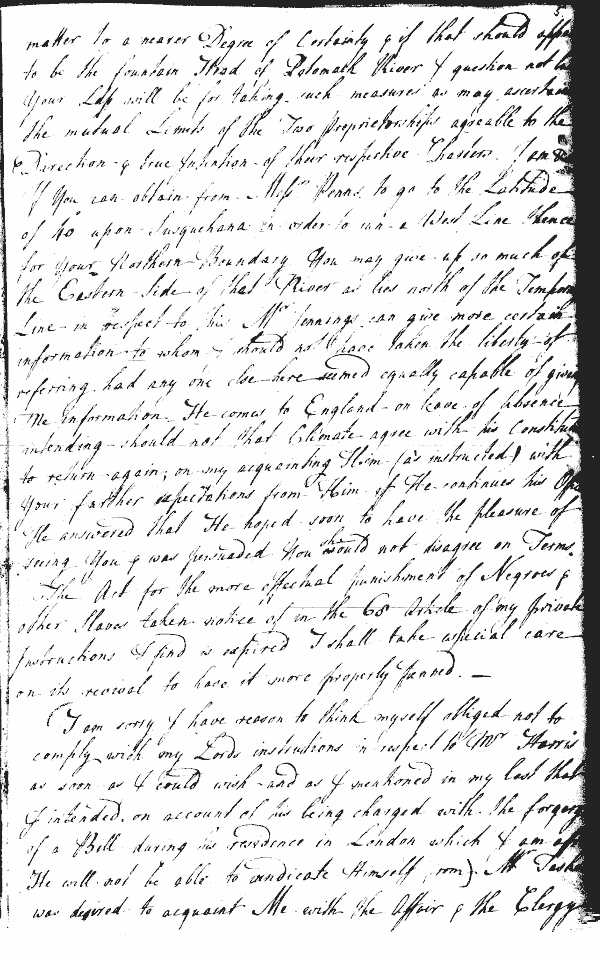 matter to a nearer Degree of Certainty & if that should appe
to be the fountain Head of Potomack River I question not
Your Ldp will be for taking such measures as may ascertain
the mutual Limits of the Two Proprietorships agreable to the
Direction & true Intention of their respective Charters. I am
If You can obtain from Messrs Penns to go to the Latitude
of 40 upon Susquehana in order to run a West Line thence
for Your Northern Boundary You may give up so much of
the Eastern Side of that River as lies north of the Tempora
Line in respect to this Mr Jennings can give more certain
information to whom I should not have taken the liberty of
referring had any one else here seemed equally capable of givin
Me information. He comes to England on leave of absence
intending should not that Climate agree with his Constituti
to return again; on my acquainting Him (as instructed) with
Your further expectations from Him if He continues his Off
He answered that He hoped soon to have the pleasure of
seeing You & was persuaded You should not disagree on Terms.
The Act for the more effectual punishment of Negroes &
other Slaves taken notice of in the 68 Article of my private
Instructions I find is expired I shall take especial care
on its revival to have it more properly penned. —
I am sorry I have reason to think myself obliged not to
comply with my Lords instructions in respect to Mr Harris
as soon as I could wish and as I mentioned in my last that
I intended, on account of his being charged with the forgery
of a Bill during his residence in London which I am
He will not be able to vindicate Himself from). Mr Taske
was desired to acquaint Me with the Affair & the Clergy